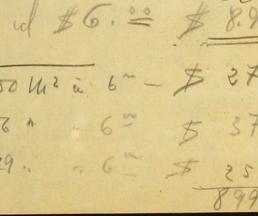 $6.00 $ 8.9
50 M² à 6 — $ 37
6 " 6 $ 37
29 " " 6 $ 25
899